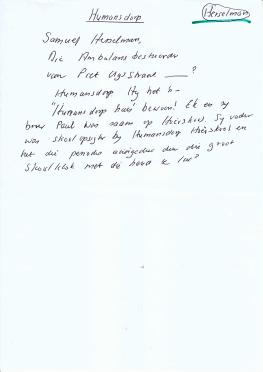 Humansdorp
Heiselman
Samuel Heiselman,
Die Ambulans bestuurder
van Piet Uys Straat ___?
Humansdorp Hy het in -
"Humansdorp huis" bewoon! Ek en sy
broer Paul was saam op Hoërskool. Sy vader
was skoolopsigter by Humansdorp Hoërskool en
het die periodes aangedui deur die groot
Skoolklok met die hand te lui?